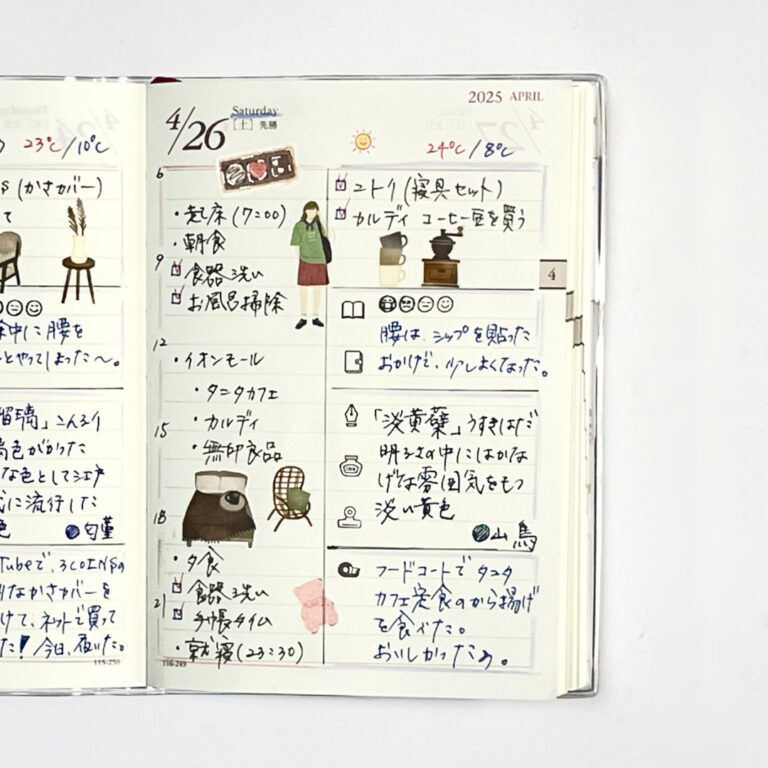 23℃/10℃
(かさカバー)
て
中に腰を
とやってしまった〜。
瑠璃」こんるり
色がかった
な色として江戸
に流行した
色
匂菫
Tubeで、3COINSの
なかさカバーを
けて、ネットで買って
た！今日、届いた。
115-250
2025 APRIL
4/26
Saturday
[土] 先勝
24℃/8℃
6
・起床(7:00)
・朝食
9
食器洗い
お風呂掃除
12
・イオンモール
・タニタカフェ
・カルディ
15
・無印良品
18
・夕食
食器洗い
21
手帳タイム
・就寝(23:30)
116-249
ニトリ(寝具セット)
カルディ コーヒー豆を買う
4
腰は、シップを貼った
おかげで、少しよくなった。
「淡黄蘗」うすきはだ
明るさの中にはかな
げな雰囲気をもつ
淡い黄色
山鳥
フードコートでタニタ
カフェ定食のから揚げ
を食べた。
おいしかったぁ。